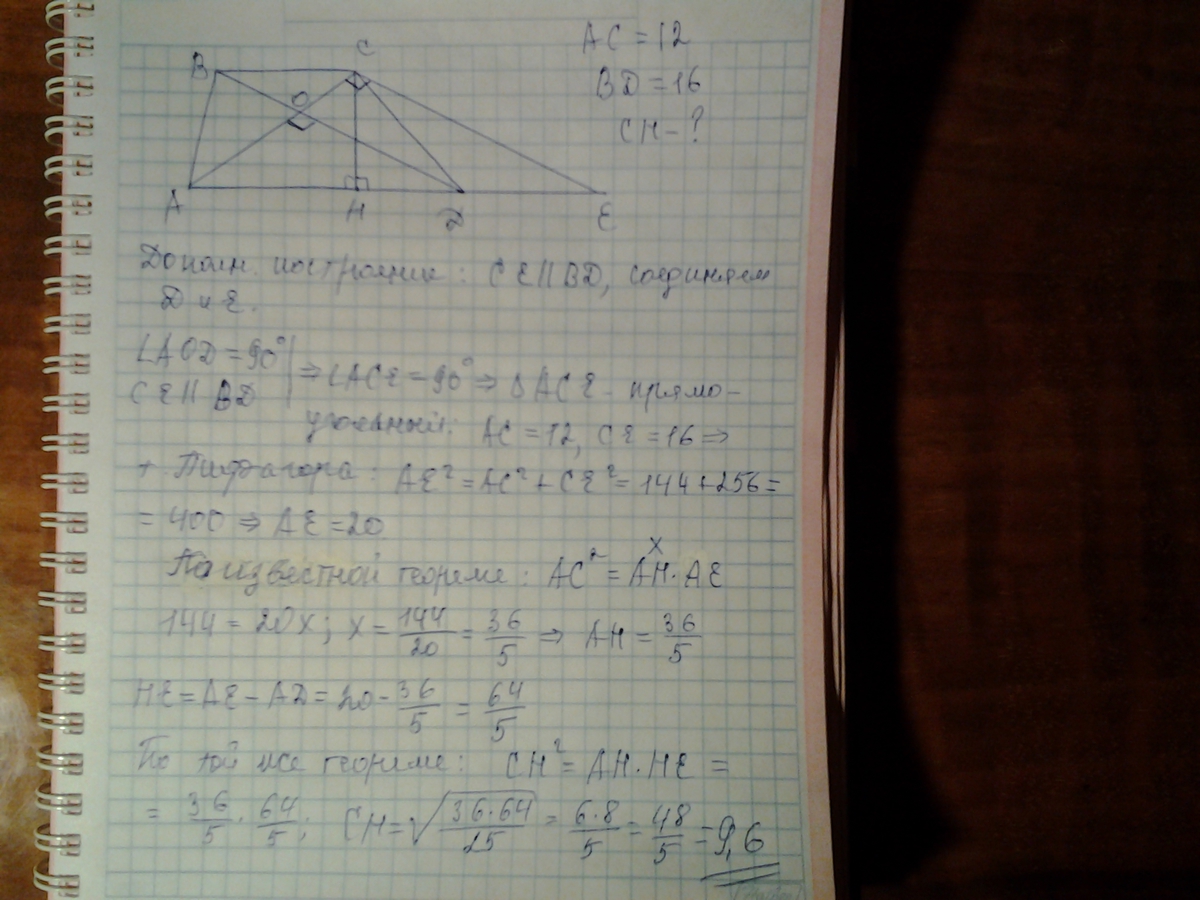 AC = 12
BD = 16
CH - ?
B C
O
A H D E
Дополн. построение: CE || BD, соединяем
D и E.
∠AOD = 90° | ⇒ ∠ACE = 90° ⇒ Δ ACE - прямо-
CE || BD
угольный: AC = 12, CE = 16 ⇒
т. Пифагора: AE² = AC² + CE² = 144 + 256 =
= 400 ⇒ AE = 20
x
По известной теореме: AC² = AH · AE
144 = 20x; x = 144/20 = 36/5 ⇒ AH = 36/5
HE = AE - AD = 20 - 36/5 = 64/5
По той же теореме: CH² = AH · HE =
= 36/5 · 64/5; CH = √(36·64/25) = 6·8/5 = 48/5 = 9,6